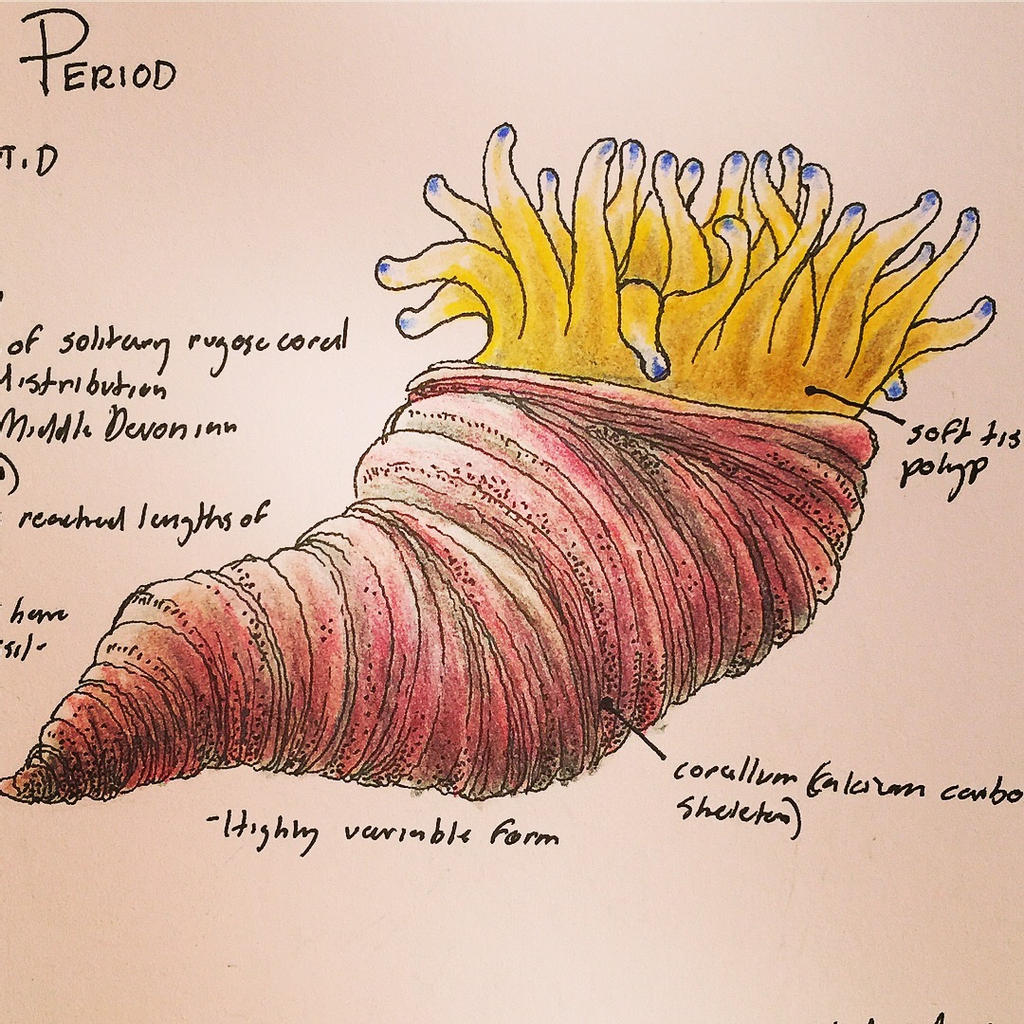 PERIOD
T.D
of solitary rugose coral
distribution
Middle Devonian
reached lengths of
have
soft tis
polyp
corallum (calcium carbo
skeleton)
-Highly variable form